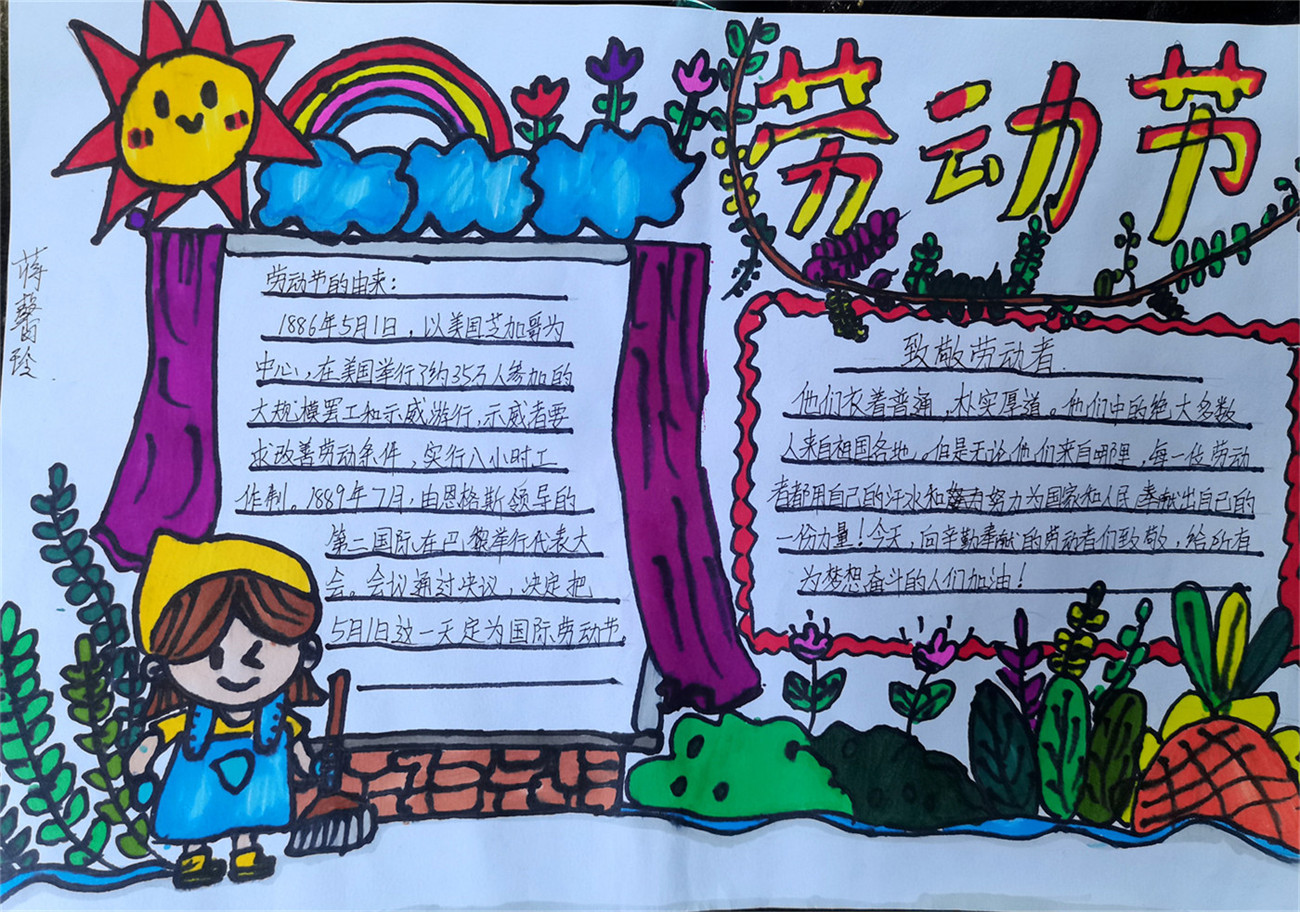 劳动节
劳动节的由来：
1886年5月1日，以美国芝加哥为
中心，在美国举行了约35万人参加的
大规模罢工和示威游行，示威者要
求改善劳动条件，实行八小时工
作制。1889年7月，由恩格斯领导的
第二国际在巴黎举行代表大
会。会议通过决议，决定把
5月1日这一天定为国际劳动节。
致敬劳动者
他们衣着普通，朴实厚道。他们中的绝大多数
人来自祖国各地，但是无论他们来自哪里，每一位劳动
者都用自己的汗水和努力为国家和人民奉献出自己的
一份力量！今天，向辛勤奉献的劳动者们致敬，给所有
为梦想奋斗的人们加油！